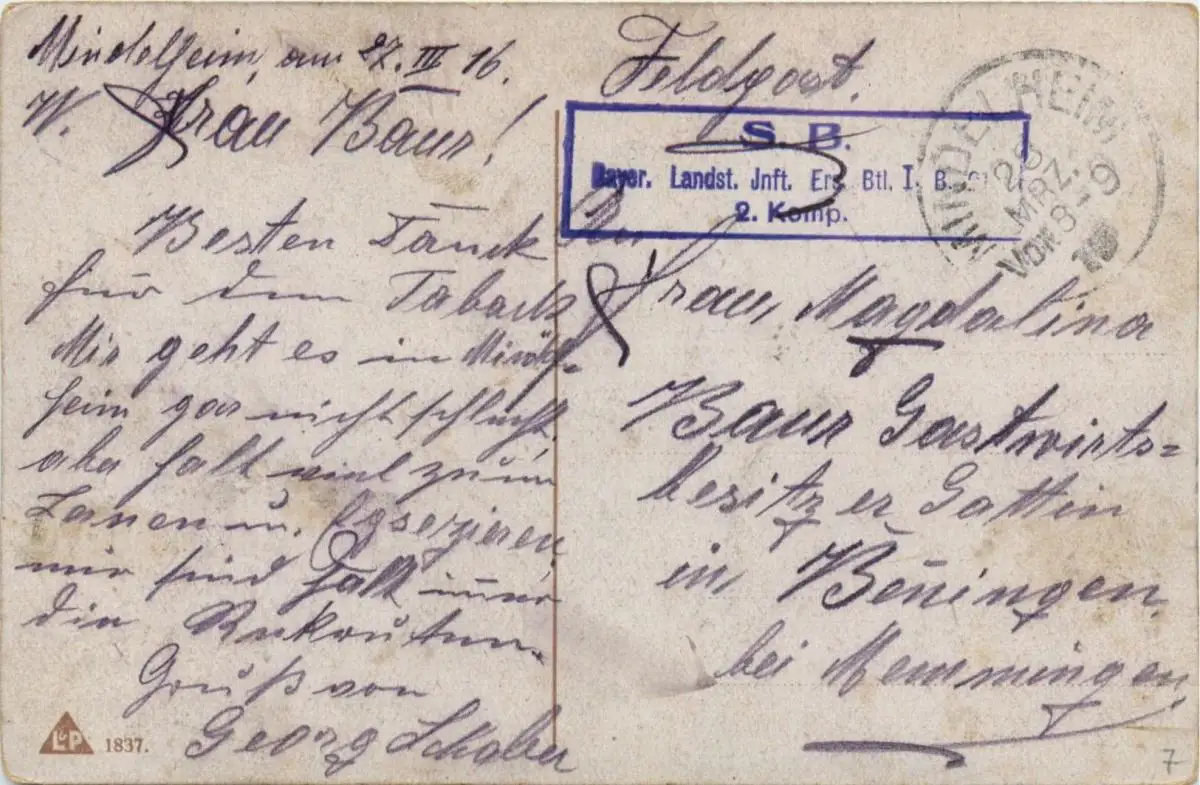 Mindelheim, am 27. III 16.
W. Frau Baur!
Besten Tanck
für dem Taback
Mir geht es in Mindl-
heim gar nicht schlecht
aber halt viel zum
Lanen u. Egsezieren
mir sind halt immer
die Rekruten.
Gruß von
Georg
L&P 1837.
Feldpost.
S. B.
Bayer. Landst. Jnft. Ers. Btl. I. B.
2. Komp.
MINDELHEIM
28. MRZ.
VORM 8-9
16
An
Frau Magdalina
Baur Gastwirts=
besitzer Gattin
in Beningen
bei Memmingen
7